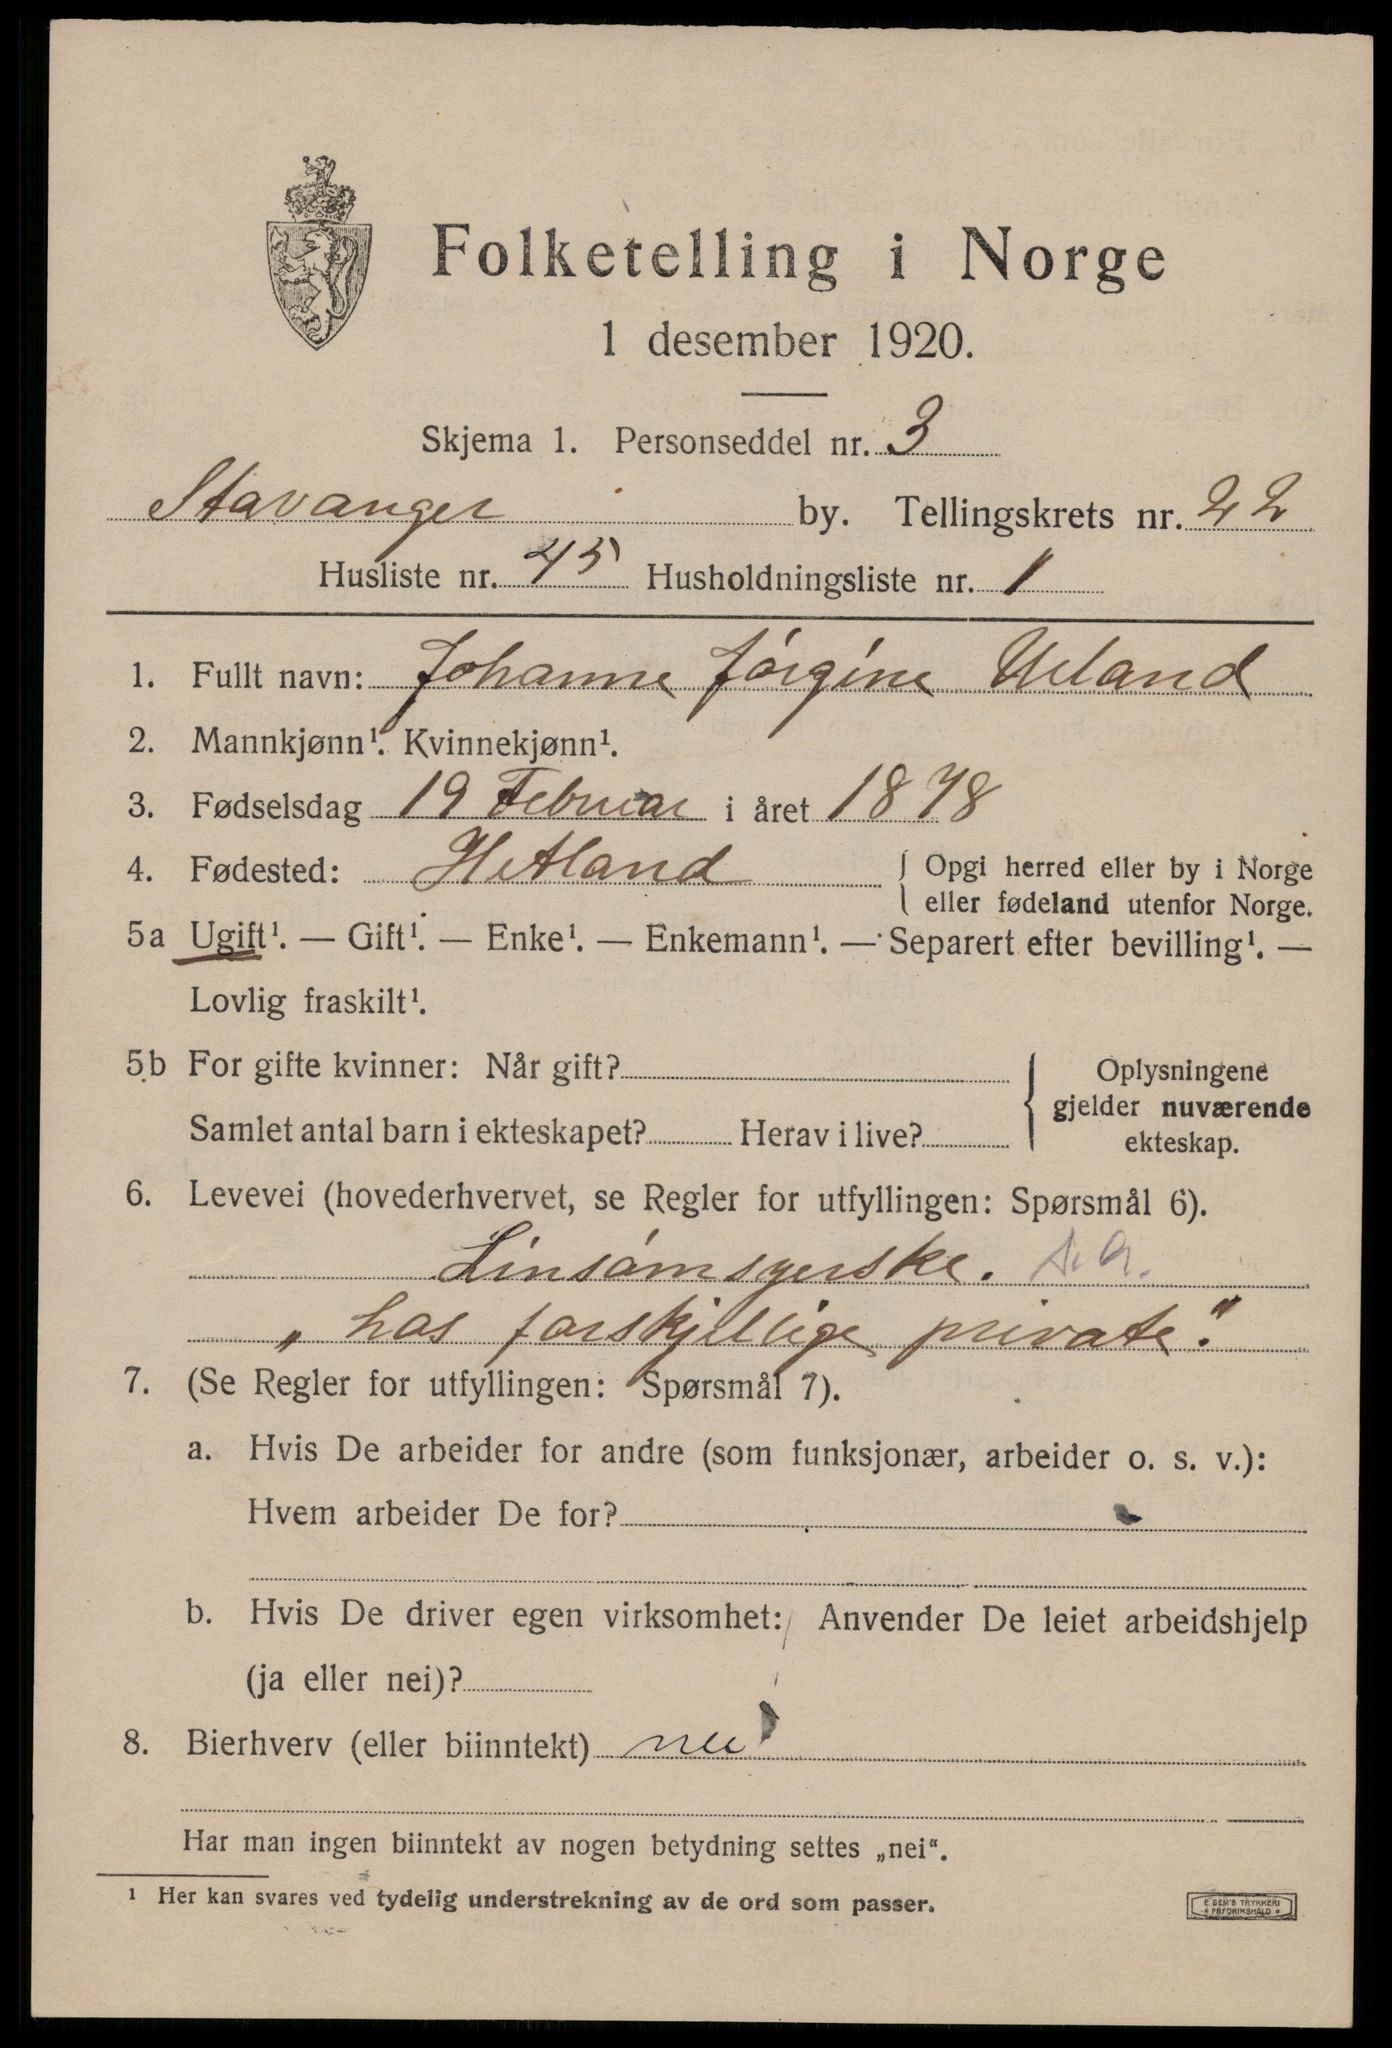 Folketelling i Norge
1 desember 1920.
Skjema 1. Personseddel nr. 3
Stavanger by. Tellingskrets nr. 22
Husliste nr. 45 Husholdningsliste nr. 1
1. Fullt navn: Johanne Jórgine Ueland
2. Mannkjønn¹. Kvinnekjønn¹.
3. Fødselsdag 19 Februar i året 1878
4. Fødested: Hetland { Opgi herred eller by i Norge
eller fødeland utenfor Norge.
5a Ugift¹. — Gift¹. — Enke¹. — Enkemann¹. — Separert efter bevilling¹. —
Lovlig fraskilt¹.
5b For gifte kvinner: Når gift? { Oplysningene
gjelder nuværende
Samlet antal barn i ekteskapet? Herav i live?
ekteskap.
6. Levevei (hovederhvervet, se Regler for utfyllingen: Spørsmål 6).
Linsómsyerske.
„ hos forskjellige private."
7. (Se Regler for utfyllingen: Spørsmål 7).
a. Hvis De arbeider for andre (som funksjonær, arbeider o. s. v.):
Hvem arbeider De for?
b. Hvis De driver egen virksomhet: Anvender De leiet arbeidshjelp
(ja eller nei)?
8. Bierhverv (eller biinntekt) nei
Har man ingen biinntekt av nogen betydning settes „nei“.
¹ Her kan svares ved tydelig understrekning av de ord som passer.
E SEM'S TRYKKERI
FREDRIKSHALD